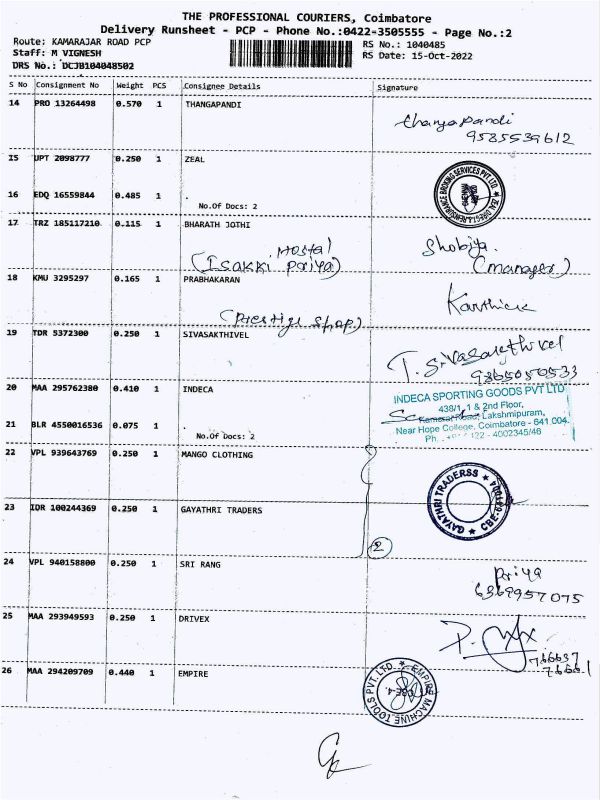 THE PROFESSIONAL COURIERS, Coimbatore
Delivery Runsheet - PCP - Phone No.:0422-3505555 - Page No.:2
Route: KAMARAJAR ROAD PCP
RS No.: 1040485
Staff: M VIGNESH
RS Date: 15-Oct-2022
DRS No.: DCJB104048502
S No Consignment No Weight PCS Consignee Details Signature
14 PRO 13264498 0.570 1 THANGAPANDI
thangapandi
9585539612
15 UPT 2098777 0.250 1 ZEAL
16 EDQ 16559844 0.485 1 .
No.Of Docs: 2
17 TRZ 185117210 0.115 1 BHARATH JOTHI
Hostal
(Isakki Priya)
Shobiya
(manager)
18 KMU 3295297 0.165 1 PRABHAKARAN
(Prestige shop)
Karthick
19 TDR 5372300 0.250 1 SIVASAKTHIVEL
T. Sivasakthivel
9865050533
20 MAA 295762380 0.410 1 INDECA
INDECA SPORTING GOODS PVT LTD
438/1, 1 & 2nd Floor,
Kamarajar Road, Lakshmipuram,
Near Hope College, Coimbatore - 641 004.
Ph. 4002345/46
21 BLR 4550016536 0.075 1
No.Of Docs: 2
22 VPL 939643769 0.250 1 MANGO CLOTHING
GAYATHRI TRADERSS
23 IDR 100244369 0.250 1 GAYATHRI TRADERS
2
24 VPL 940158800 0.250 1 SRI RANG
Priya
6369957075
25 MAA 293949593 0.250 1 DRIVEX
766637
76661
26 MAA 294209709 0.440 1 EMPIRE
EMPIRE MACHINE TOOLS PVT. LTD.
CBE-4